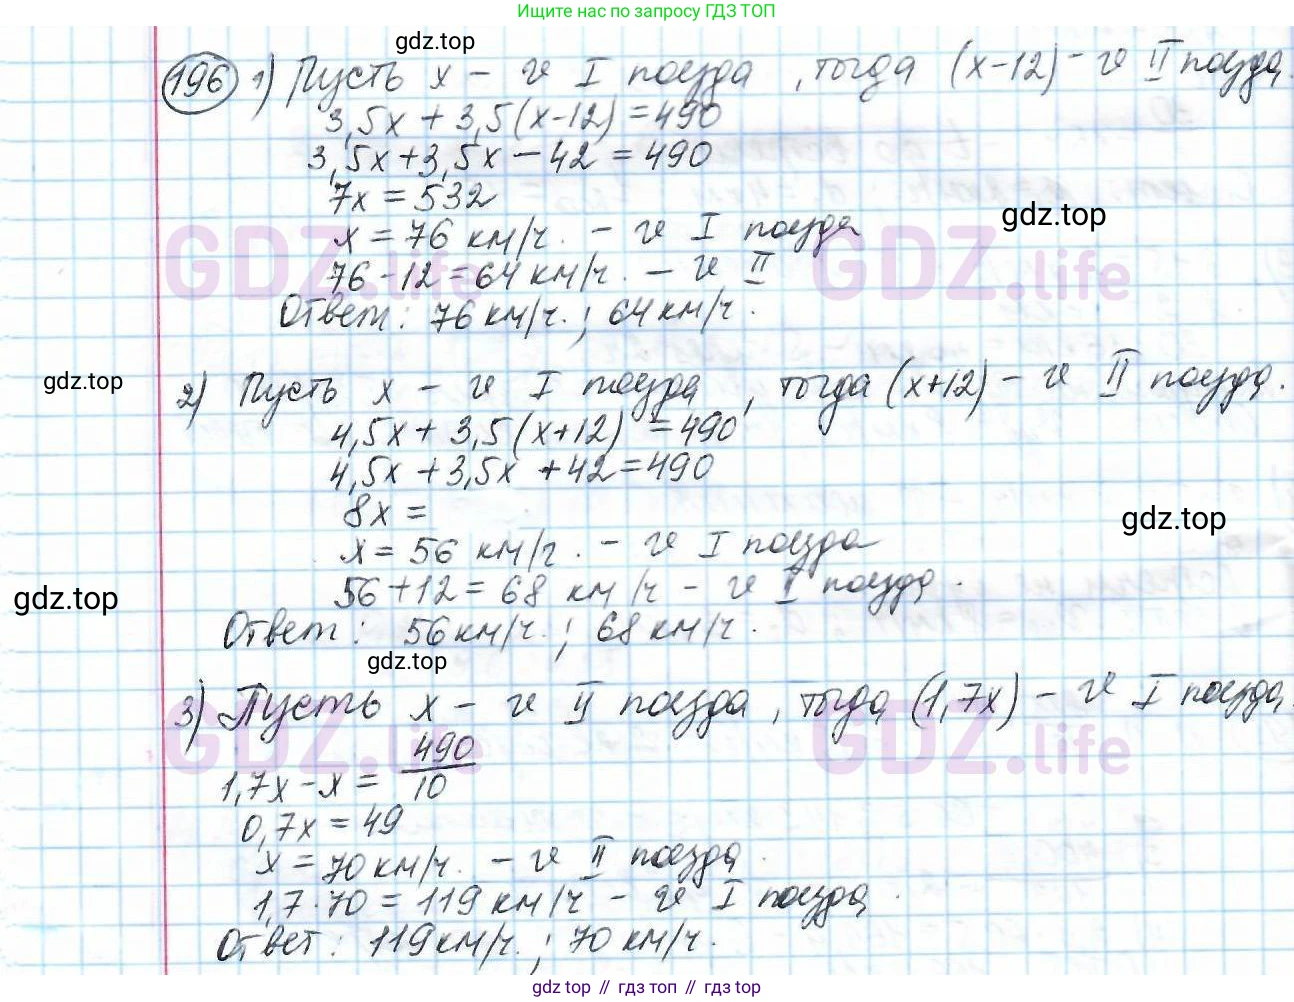 Ищите нас по запросу ГДЗ ТОП
gdz.top
196 1) Пусть x – v I поезда, тогда (x-12) – v II поезда.
3,5x + 3,5(x-12) = 490
3,5x + 3,5x – 42 = 490
7x = 532
gdz.top
x = 76 км/ч. – v I поезда
76 - 12 = 64 км/ч. – v II
GDZ.life GDZ.life
Ответ: 76 км/ч.; 64 км/ч.
gdz.top
2) Пусть x – v I поезда, тогда (x+12) – v II поезда.
4,5x + 3,5(x+12) = 490
4,5x + 3,5x + 42 = 490
8x =
gdz.top
x = 56 км/ч. – v I поезда
56 + 12 = 68 км/ч – v I поезда.
gdz.top
Ответ: 56 км/ч.; 68 км/ч.
gdz.top
3) Пусть x – v II поезда, тогда (1,7x) – v I поезда.
1,7x - x = 490/10
GDZ.life GDZ.life
0,7x = 49
x = 70 км/ч. – v II поезда.
1,7 · 70 = 119 км/ч – v I поезда.
Ответ: 119 км/ч.; 70 км/ч.
gdz top // гдз топ // gdz top